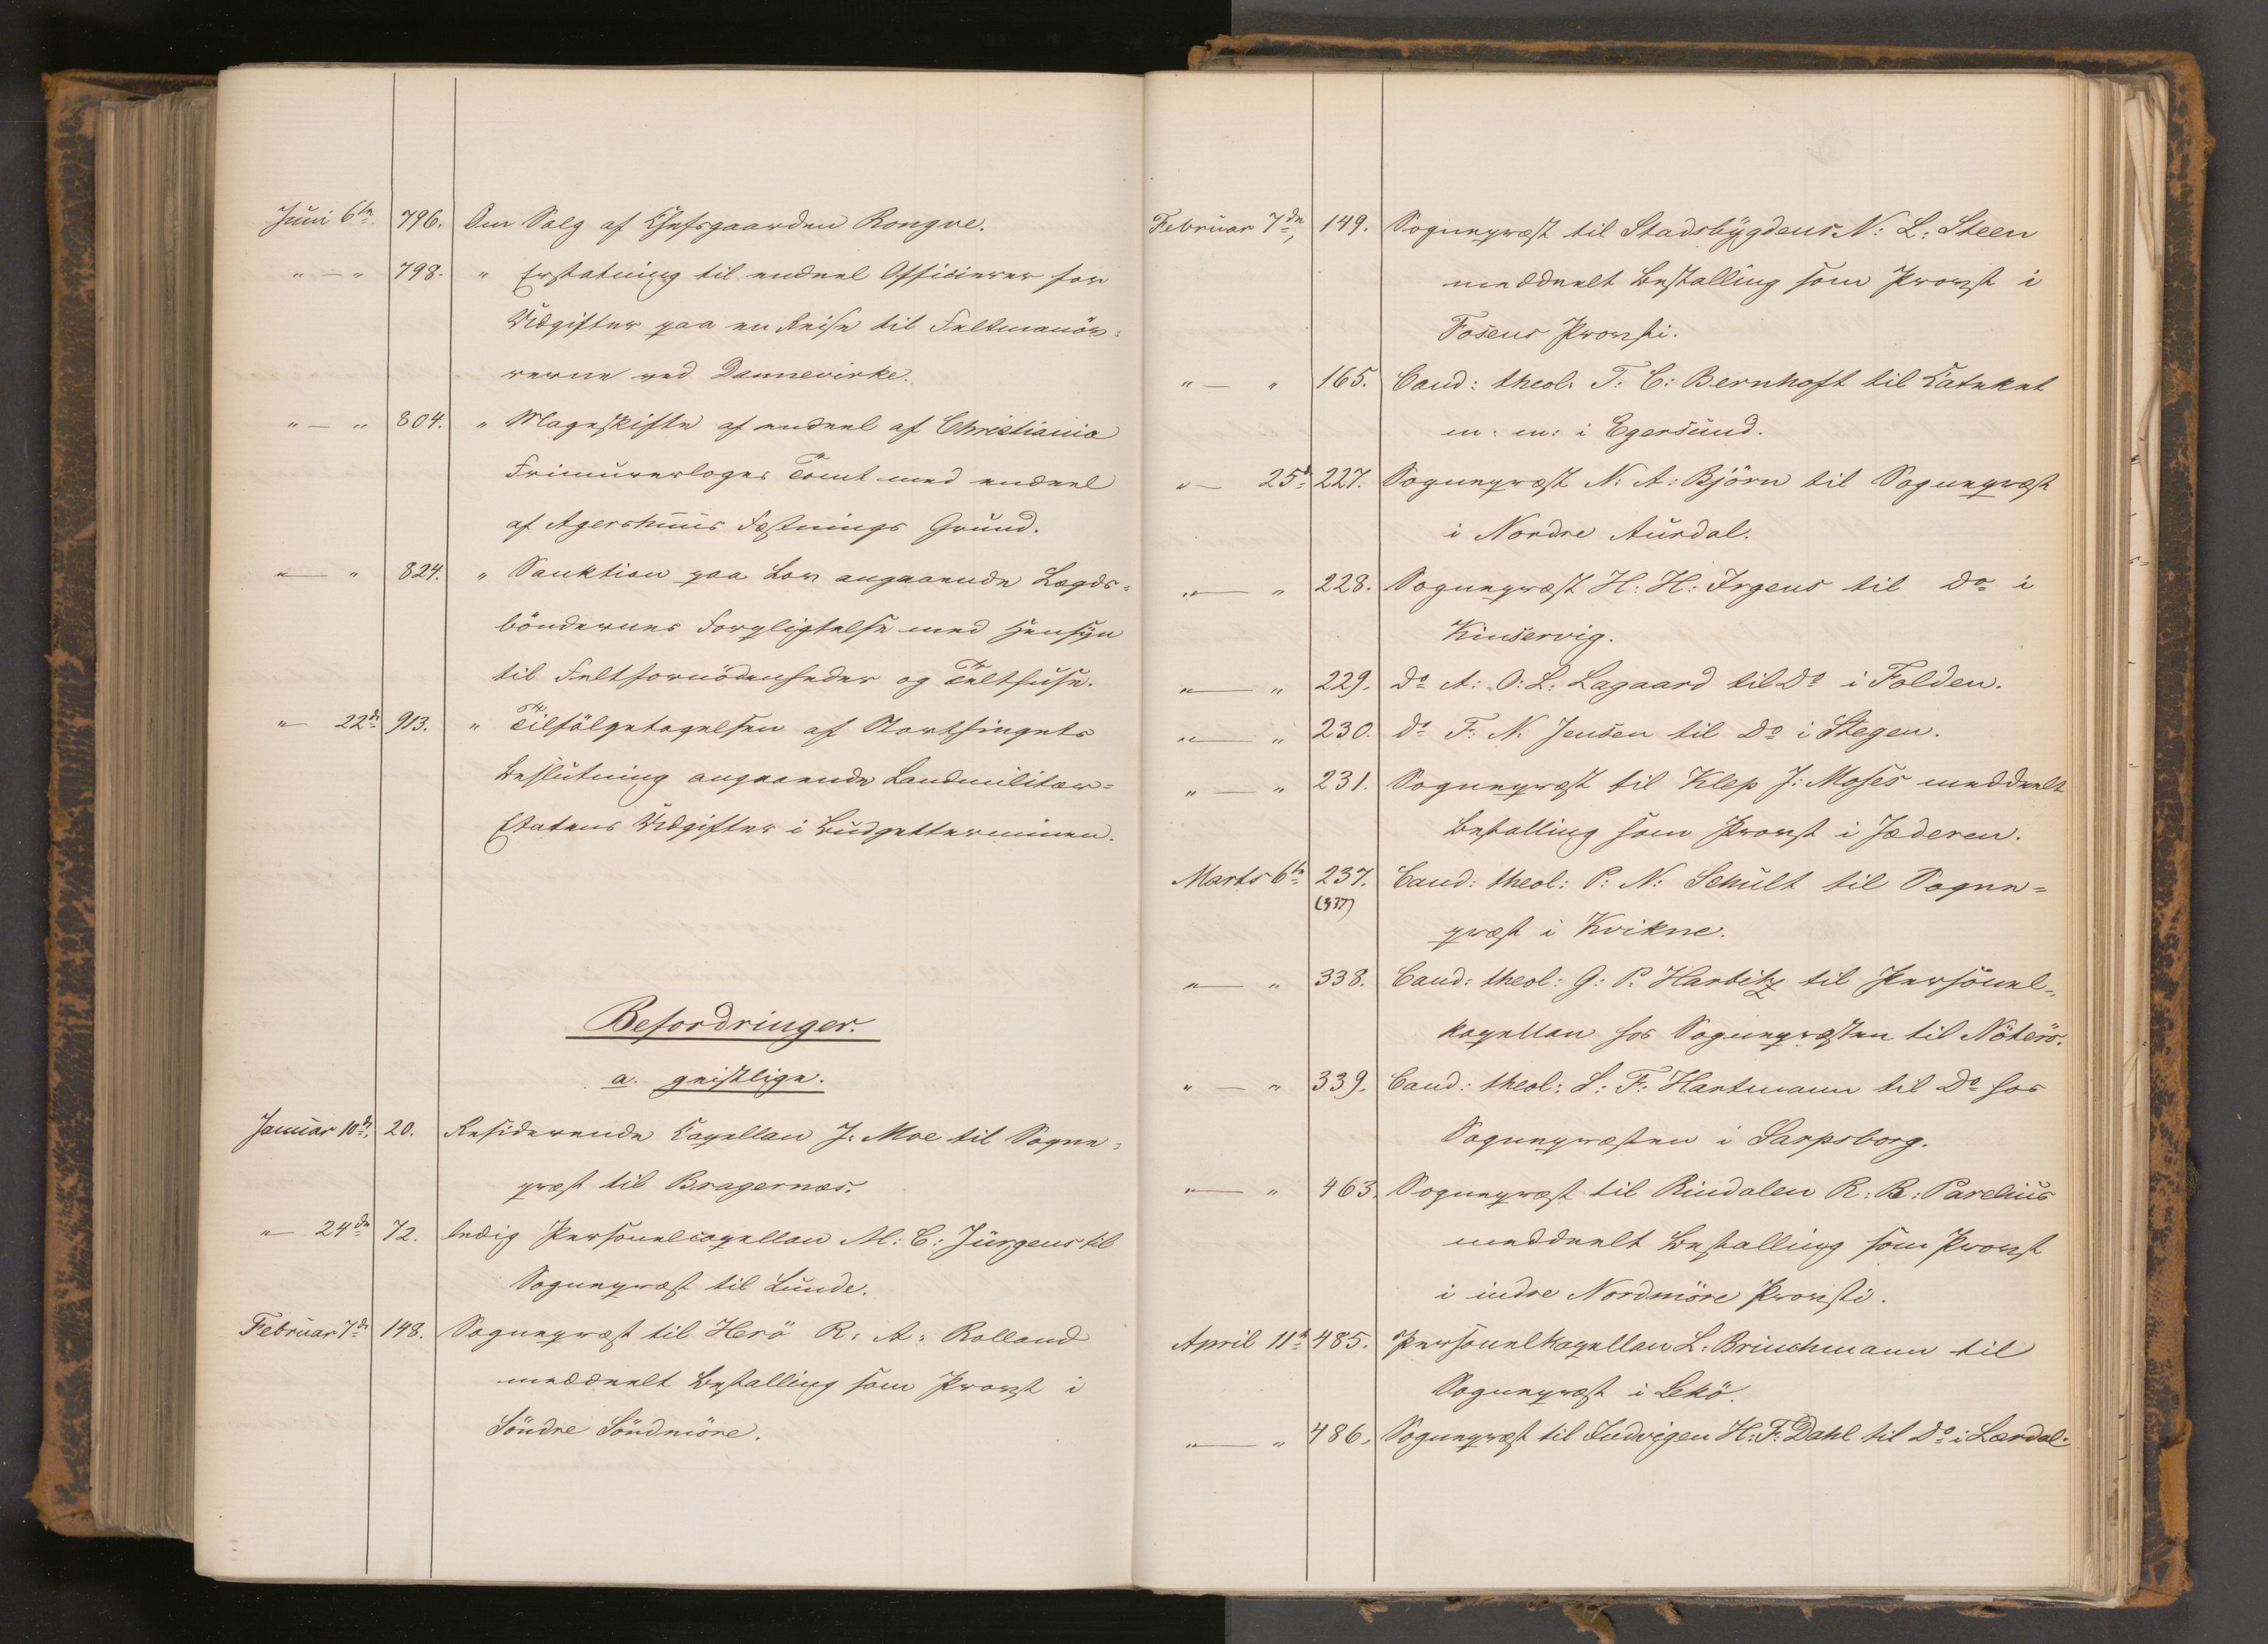 Juni 6te 796. Om Salg af Chefsgaarden Rongve.
" — " 798. " Erstatning til endeel Officierer for
Udgifter paa en Reise til Feltmanöv=
rerne ved Dannevirke.
" — " 804. " Mageskifte af endeel af Christiania
Frimurerloges Tomt med endeel
af Agershuus Fæstnings Grund.
" — " 824. " Sanktion paa Lov angaaende Lægds=
böndernes Forpligtelse med Hensyn
til Feltfornödenheder og Telthuse.
" 22de 913. " Tilfölgetagelsen af Storthingets
Beslutning angaaende Landmilitær=
Etatens Udgifter i Budgetterminen.
Befordringer.
a. geistlige.
Januar 10de, 20. Residerende Capellan J: Moe til Sogne=
præst til Bragernæs.
" 24de 72. ledig Personelcapellan M: C: Jürgens til
Sognepræst til Lunde.
Februar 7de 148. Sognepræst til Herö R: A: Rolland
meddeelt Bestalling som Provst i
Söndre Söndmöre.
Februar 7de, 149. Sognepræst til Stadsbygdens N: L: Steen
meddeelt Bestalling som Provst i
Fosens Provsti.
" — " 165. Cand: theol: T: C: Bernhoft til Cateket
m: m: i Egersund.
" — 25de 227. Sognepræst N: A: Björn til Sognepræst
i Nordre Aurdal.
" — " 228. Sognepræst H: H: Irgens til do i
Kinservig.
" — " 229. do A: O: L: Lagaard til Do i Folden.
" — " 230. do F: N. Jensen til Do i Stegen.
" — " 231. Sognepræst til Klep J: Moses meddeelt
Bestalling som Provst i Jæderen.
Marts 6te 237. Cand: theol: P: N: Schult til Sogne=
(337)
præst i Kvikne.
" — " 338. Cand: theol: G: P. Harbitz til Personel=
kapellan hos Sognepræsten til Nöterö.
" — " 339. Cand: theol: L: F: Hartmann til Do hos
Sognepræsten i Sarpsborg.
" — " 463. Sognepræst til Rindalen R: B: Parelius
meddeelt Bestalling som Provst
i indre Nordmöre Provsti.
April 11te 485. Personelkapellan L: Brinchmann til
Sognepræst i Lekö.
" — " 486. Sognepræst til Indvigen H: F: Dahl til Do i Lærdal.